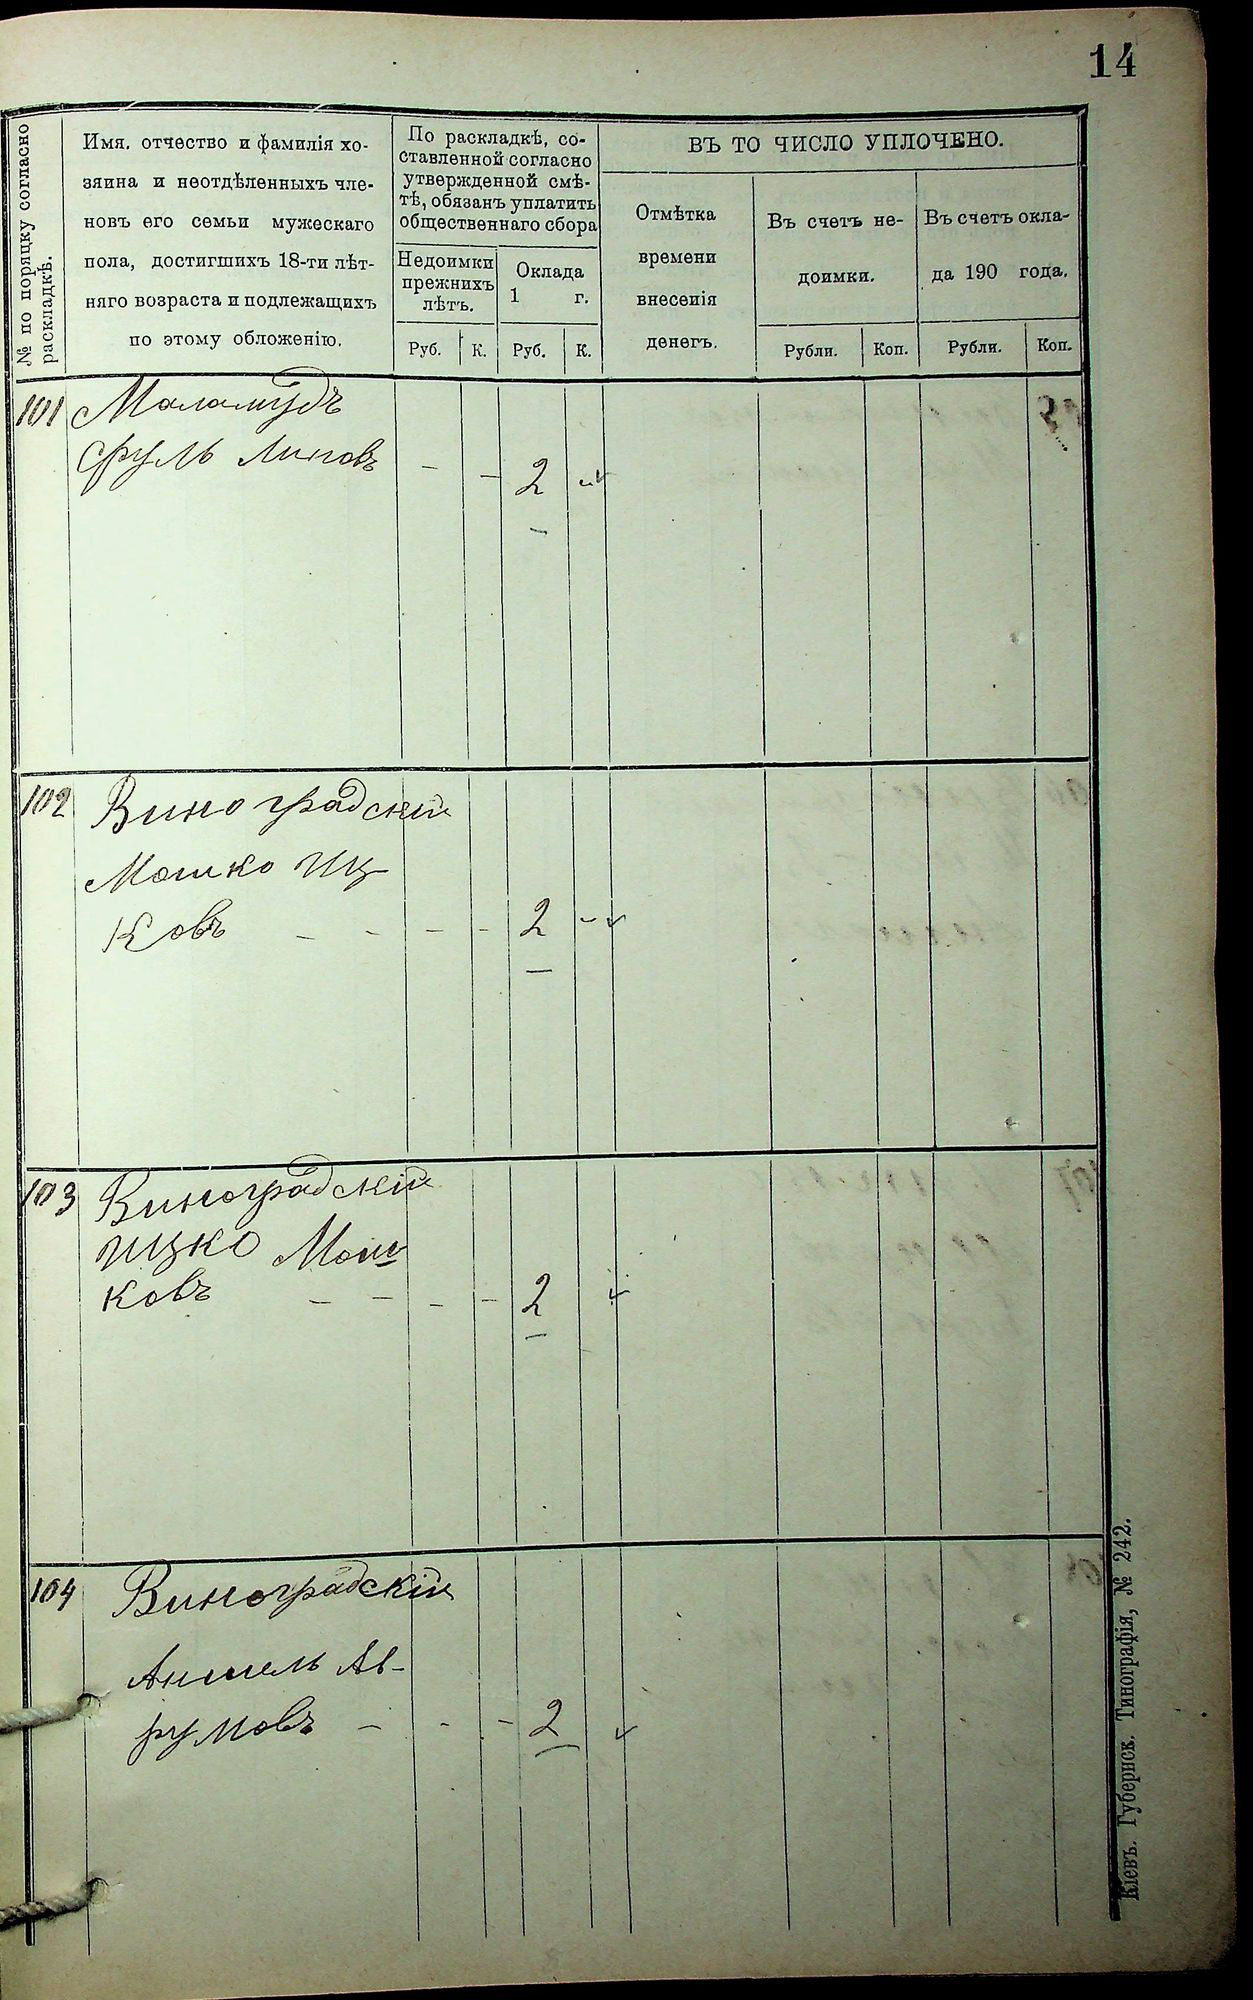 14
№ по порядку согласно
раскладкѣ.
Имя, отчество и фамилія хо-
зяина и неотдѣленныхъ чле-
новъ его семьи мужескаго
пола, достигшихъ 18-ти лѣт-
няго возраста и подлежащихъ
по этому обложенію.
По раскладкѣ, со-
ставленной согласно
утвержденной смѣ-
тѣ, обязанъ уплатить
общественнаго сбора
Недоимки
прежнихъ
лѣтъ.
Руб. К.
Оклада
1 г.
Руб. К.
ВЪ ТО ЧИСЛО УПЛОЧЕНО.
Отмѣтка
времени
внесенія
денегъ.
Въ счетъ не-
доимки.
Рубли. Коп.
Въ счетъ окла-
да 190 года.
Рубли. Коп.
101 Маламудъ
Сруль Липовъ - - 2
102 Виноградскій
Мошко Иц-
ковъ - - - - 2 -
103 Виноградскій
Ицко Мош
ковъ - - - - 2
104 Виноградскій
Аншель Ав-
румовъ - - - 2
Кіевъ. Губернск. Типографія, № 242.